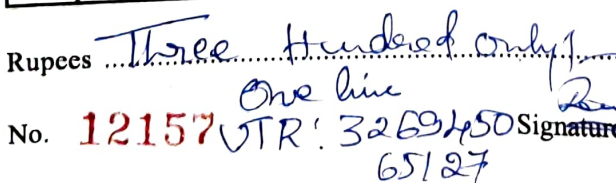 Rupees Three Hundred only/-
One line
No. 12157 UTR: 3269450 Signature
65127